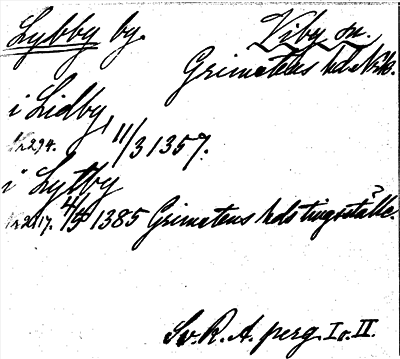 Lybby by.
Viby sn.
Grimstens hd. Nrk.
i Lidby, 11/3 1357.
Nr 294.
i Lytby
Nr 2117. 4/5 1385 Grimstens hds tingsställe.
Sv. R. A. perg. I o. II.